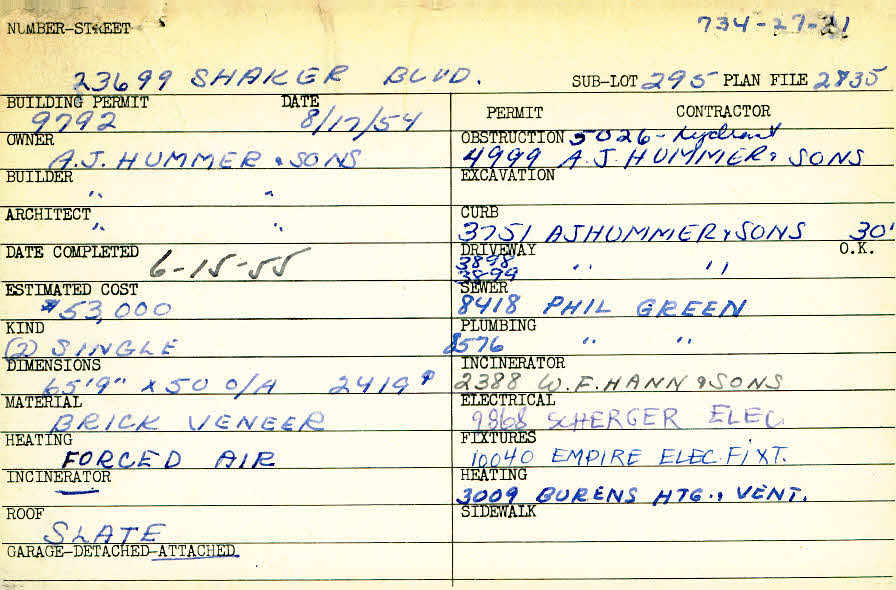 NUMBER-STREET 734-27-21
23699 SHAKER BLVD. SUB-LOT 295 PLAN FILE 2835
BUILDING PERMIT DATE
9792 8/17/54
OWNER
A.J. HUMMER & SONS
BUILDER
" "
ARCHITECT
" "
DATE COMPLETED
6-15-55
ESTIMATED COST
$53,000
KIND
(2) SINGLE
DIMENSIONS
65'9" x 50 O/A 2419
MATERIAL
BRICK VENEER
HEATING
FORCED AIR
INCINERATOR
ROOF
SLATE
GARAGE-DETACHED-ATTACHED
PERMIT CONTRACTOR
OBSTRUCTION 5026-Hydrant
4999 A.J. HUMMER & SONS
EXCAVATION
CURB
3751 AJHUMMER & SONS 30'
DRIVEWAY O.K.
3898 " "
3899
SEWER
8418 PHIL GREEN
PLUMBING
8576 " "
INCINERATOR
2388 W.F. HANN & SONS
ELECTRICAL
9868 SCHERGER ELEC.
FIXTURES
10040 EMPIRE ELEC. FIXT.
HEATING
3009 BURENS HTG. & VENT.
SIDEWALK